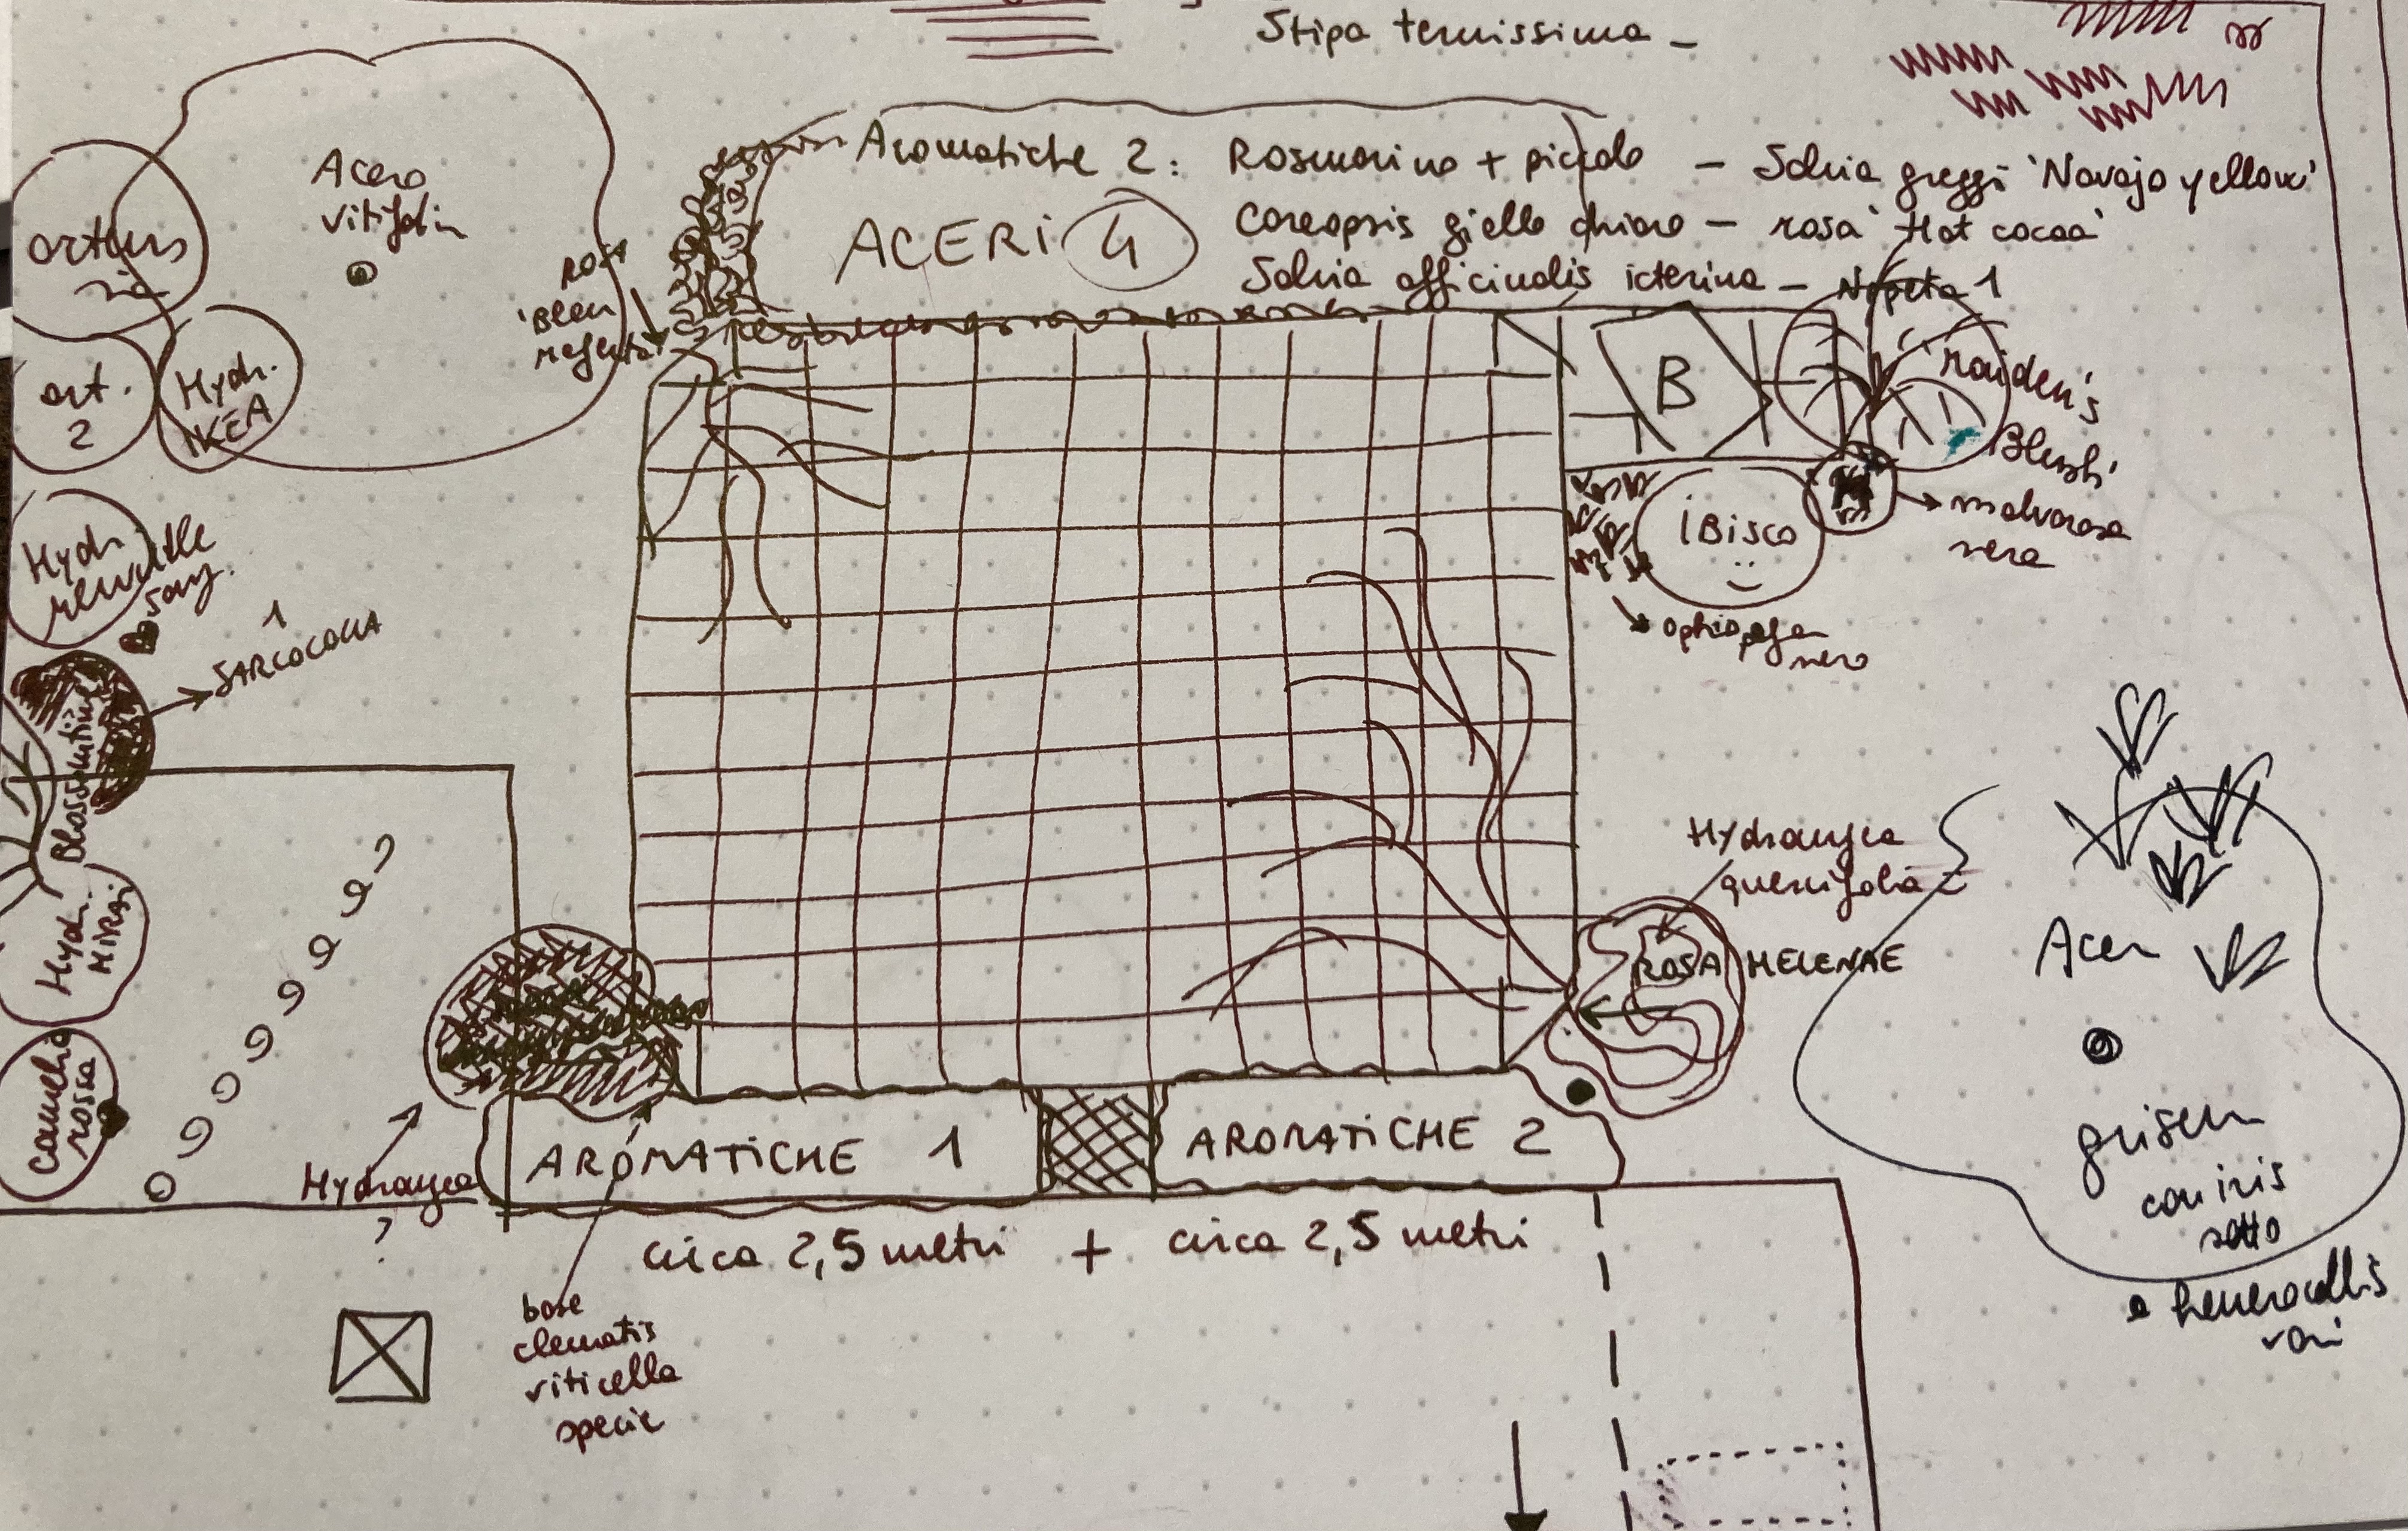 Stipa tenuissima –
Aromatiche 2: Rosmarino + piccolo – Salvia greggi 'Navajo yellow'
Coreopsis giallo chiaro – rosa 'Hot cocoa'
Salvia officinalis icterina – Nepeta 1
ACERI 4
Acero
vitifolium
orten
sia
ort.
2
Hydr.
IKEA
ROSA
'Bleu
magenta'
B
'maiden's
Blush'
iBisco
malvarosa
nera
ophiopogon
nero
Hydr.
SARCOCOCCA
1
Hydr.
Mirai
camelia
rossa
Hydrangea
quercifolia
ROSA HELENAE
Acer
griseum
con iris
sotto
e hemerocallis
vari
Hydrangea
?
AROMATICHE 1
AROMATICHE 2
circa 2,5 metri + circa 2,5 metri
base
clematis
viticella
specie